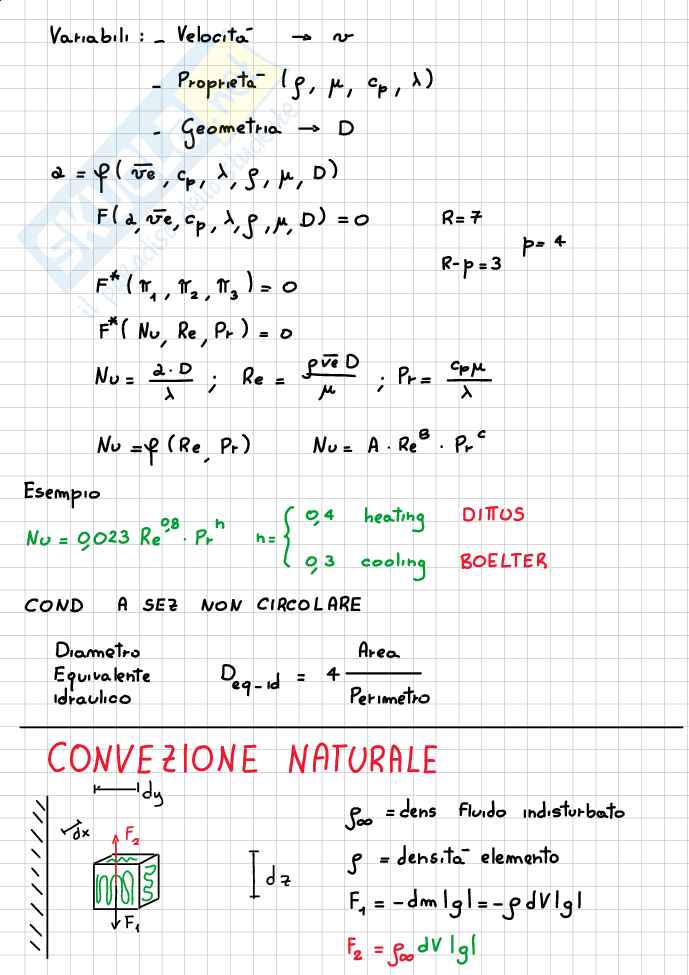 Variabili : - Velocità → v
- Proprietà (ρ, μ, cp, λ)
- Geometria → D
α = φ(ve, cp, λ, ρ, μ, D)
F(α, ve, cp, λ, ρ, μ, D) = 0 R = 7
R-p = 3 p = 4
F*(π₁, π₂, π₃) = 0
F*(Nu, Re, Pr) = 0
Nu = α·D / λ ; Re = ρ ve D / μ ; Pr = cp μ / λ
Nu = φ(Re, Pr) Nu = A · Re^B · Pr^C
Esempio
Nu = 0,023 Re^0,8 · Pr^n n = { 0,4 heating DITTUS
0,3 cooling BOELTER
COND A SEZ NON CIRCOLARE
Diametro
Equivalente
idraulico
D eq-id = 4 Area / Perimetro
CONVEZIONE NATURALE
dy
dx
F₂
dz
F₁
ρ∞ = dens fluido indisturbato
ρ = densità elemento
F₁ = -dm|g| = -ρ dV|g|
F₂ = ρ∞ dV|g|
SKUOLA.net